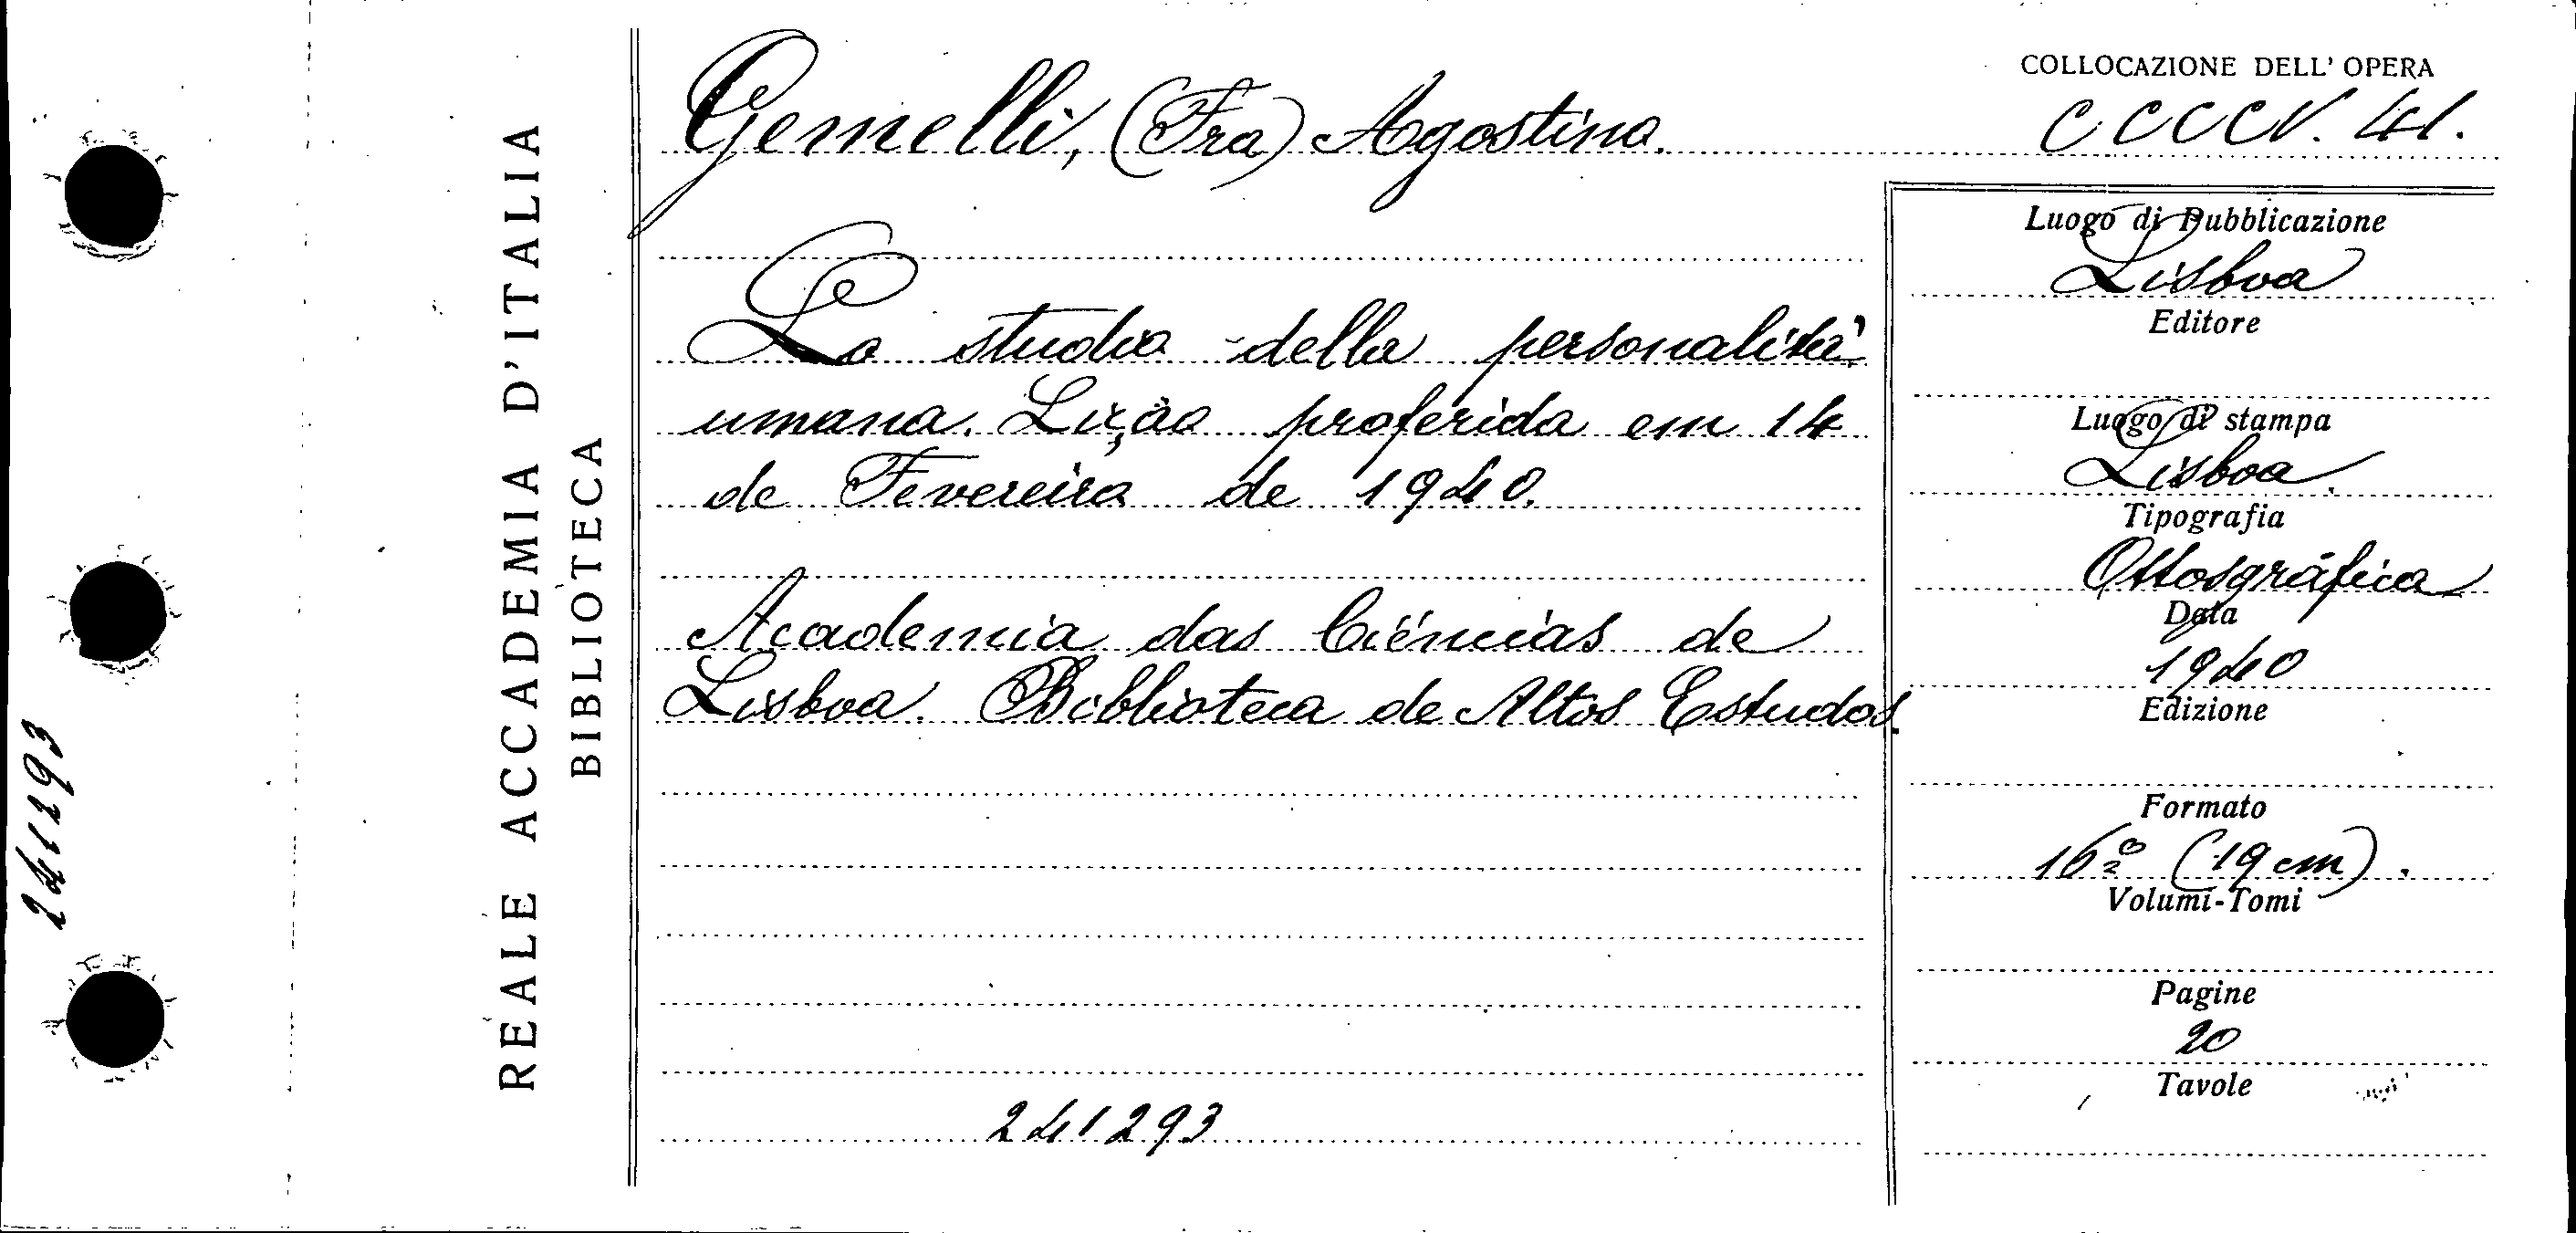 COLLOCAZIONE DELL' OPERA
Gemelli, (Fra) Agostino.
CCCCV. 41.
Lo studio della personalità
umana. Lição proferida em 14
de Fevereiro de 1940.
Academia das Ciências de
Lisboa. Biblioteca de Altos Estudos.
241293
Luogo di Pubblicazione
Lisboa
Editore
Luogo di stampa
Lisboa.
Tipografia
Ottosgráfica
Data
1940
Edizione
Formato
16º (19 cm).
Volumi-Tomi
Pagine
20
Tavole
REALE ACCADEMIA D'ITALIA
BIBLIOTECA
241293